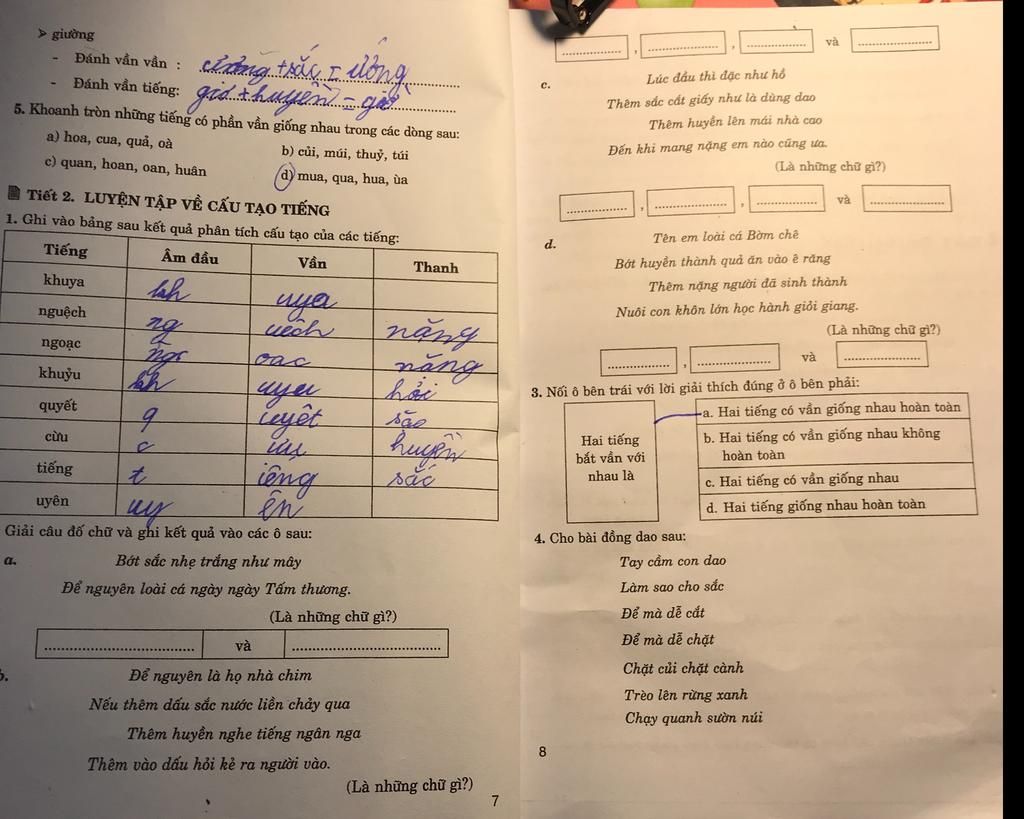 ➢ giường
- Đánh vần vần : ương + sắc = ướng
- Đánh vần tiếng: giơ + huyền = giờ
5. Khoanh tròn những tiếng có phần vần giống nhau trong các dòng sau:
a) hoa, cua, quả, oà b) củi, múi, thuỷ, túi
c) quan, hoan, oan, huân d) mua, qua, hua, ùa
Tiết 2. LUYỆN TẬP VỀ CẤU TẠO TIẾNG
1. Ghi vào bảng sau kết quả phân tích cấu tạo của các tiếng:
Tiếng Âm đầu Vần Thanh
khuya kh uya
nguệch ng uêch nặng
ngoạc ng oac nặng
khuỷu kh uyu hỏi
quyết q uyêt sắc
cừu c ưu huyền
tiếng t iêng sắc
uyên uy ên
Giải câu đố chữ và ghi kết quả vào các ô sau:
a. Bớt sắc nhẹ trắng như mây
Để nguyên loài cá ngày ngày Tấm thương.
(Là những chữ gì?)
và
b. Để nguyên là họ nhà chim
Nếu thêm dấu sắc nước liền chảy qua
Thêm huyền nghe tiếng ngân nga
Thêm vào dấu hỏi kẻ ra người vào.
(Là những chữ gì?)
7
, , và
c. Lúc đầu thì đặc như hồ
Thêm sắc cắt giấy như là dùng dao
Thêm huyền lên mái nhà cao
Đến khi mang nặng em nào cũng ưa.
(Là những chữ gì?)
, , và
d. Tên em loài cá Bờm chê
Bớt huyền thành quả ăn vào ê răng
Thêm nặng người đã sinh thành
Nuôi con khôn lớn học hành giỏi giang.
(Là những chữ gì?)
, và
3. Nối ô bên trái với lời giải thích đúng ở ô bên phải:
Hai tiếng
bắt vần với
nhau là
a. Hai tiếng có vần giống nhau hoàn toàn
b. Hai tiếng có vần giống nhau không
hoàn toàn
c. Hai tiếng có vần giống nhau
d. Hai tiếng giống nhau hoàn toàn
4. Cho bài đồng dao sau:
Tay cầm con dao
Làm sao cho sắc
Để mà dễ cắt
Để mà dễ chặt
Chặt củi chặt cành
Trèo lên rừng xanh
Chạy quanh sườn núi
8